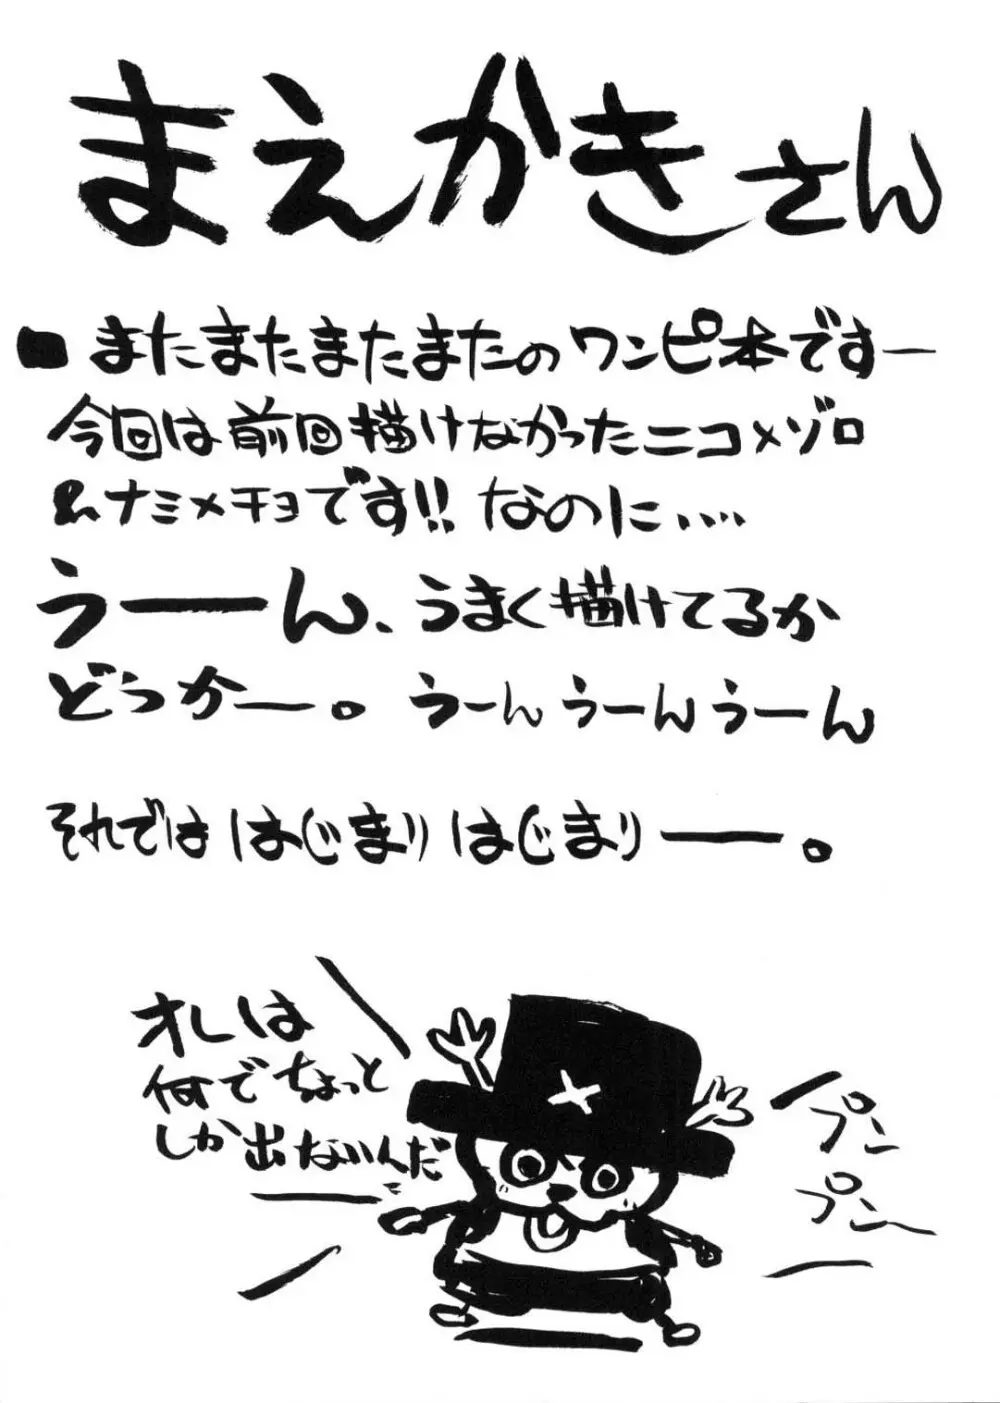 まえかきさん
■またまたまたまたのワンピ本ですー
今回は前回描けなかったニコ×ゾロ
&ナミ×チョです!!なのに....
うーん、うまく描けてるか
どうかー。うーんうーんうーん
それでははじまりはじまりー。
オレは
何でちょっと
しか出ないんだ
プン
プン